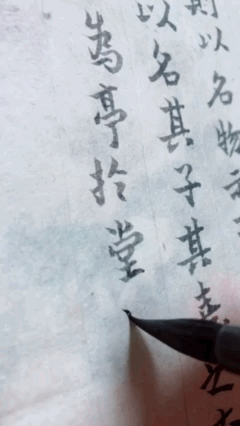 則以名物示
以名其子其喜
為亭扵堂